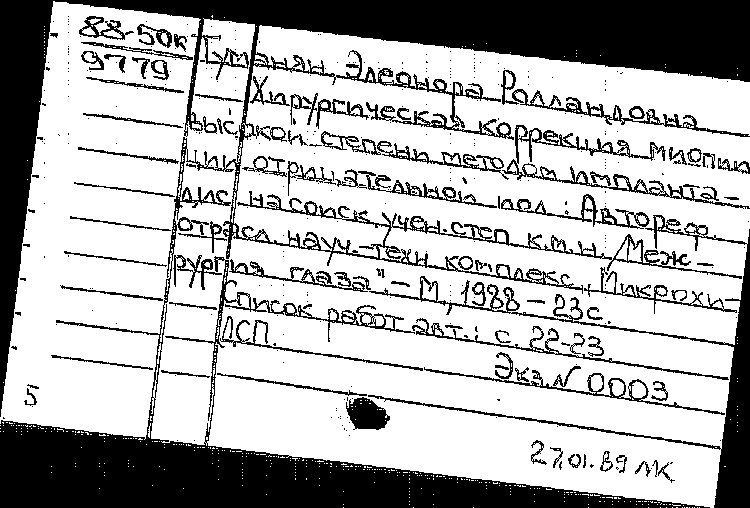 88-50к
9779
Туманян, ЭлеонораРолландовна
Хирургическая коррекция миопии
высокой степени методом импланта-
ции отрицательной иол: Автореф.
дис. на соиск. учен. степ к.м.н. /Меж-
отрасл. науч.-техн комплекс „Микрохи-
рургия глаза".-М., 1988-23с.
Список работ авт.: с. 22-23.
ДСП.
Экз.N 0003.
5
27.01.89 МК